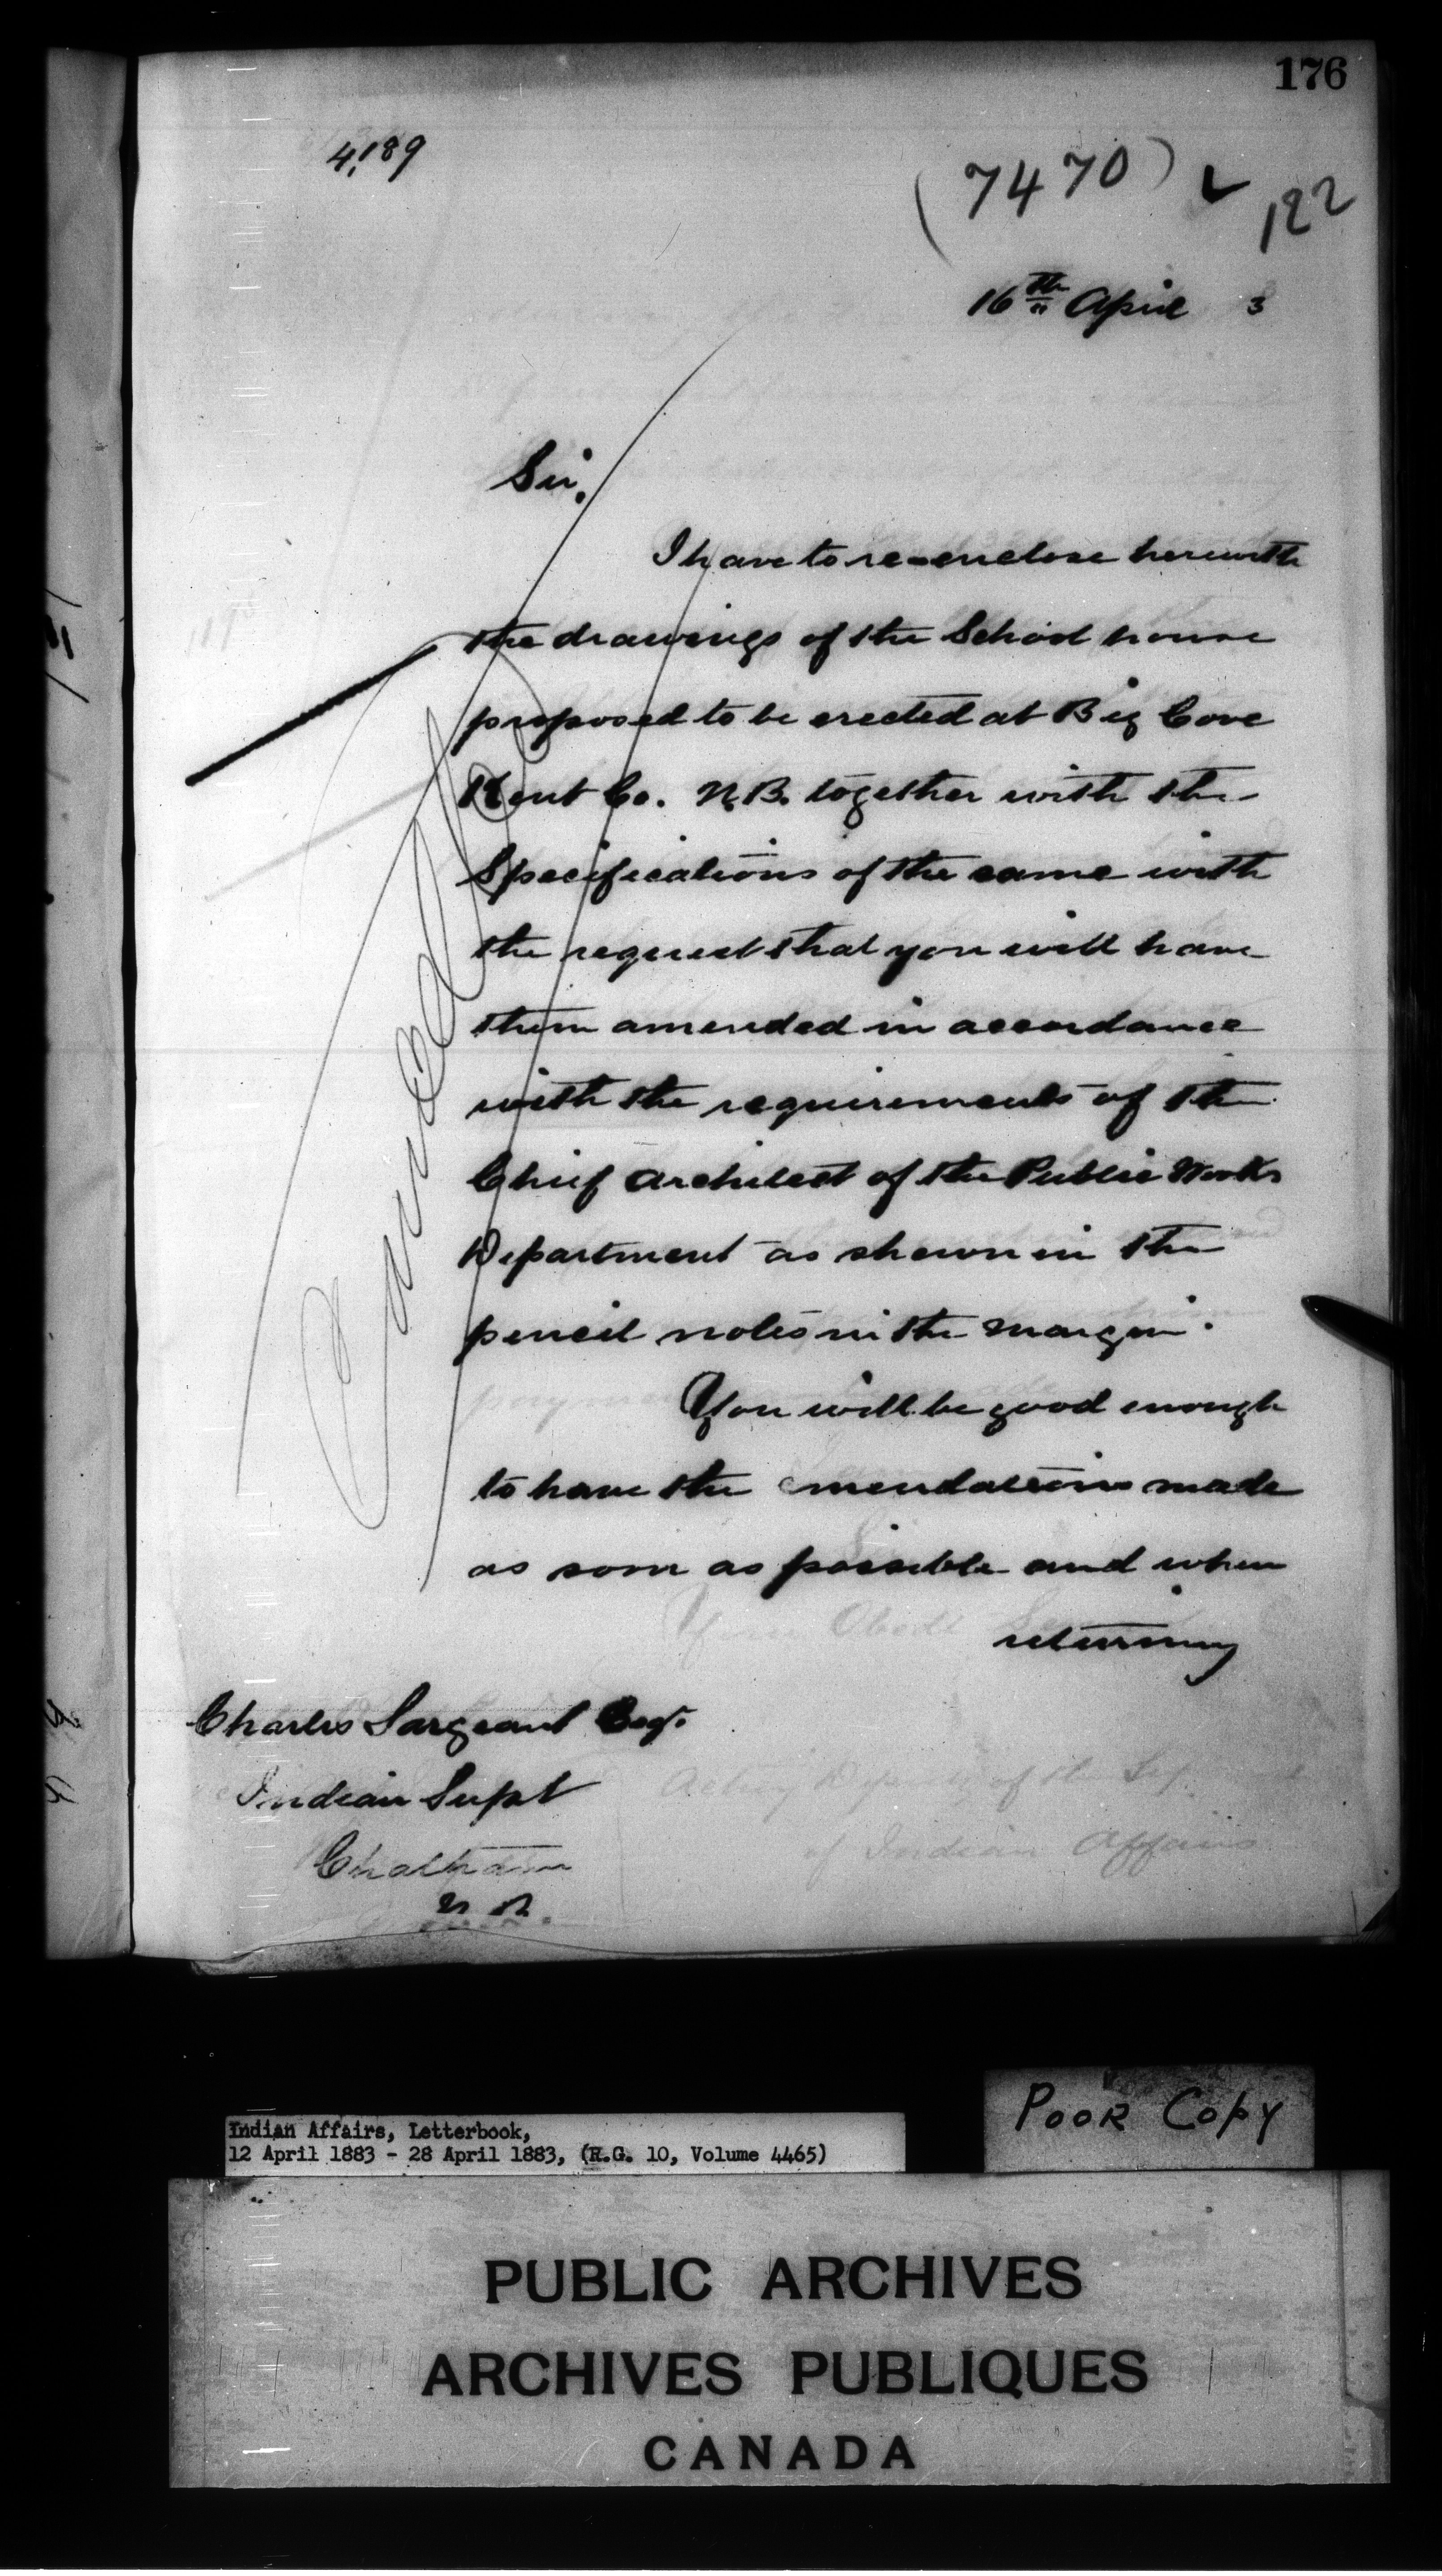 176
4,189
(7470) 122
16th April 3
Sir,
I have to re-enclose herewith
the drawings of the School house
proposed to be erected at Big Cove
Kent Co. N.B. together with the
Specifications of the same with
the request that you will have
them amended in accordance
with the requirements of the
Chief Architect of the Public Works
Department as shewn in the
pencil notes in the margin.
You will be good enough
to have the emendations made
as soon as possible and when
returning
Cancelled
Charles Sargeant Esqr.
Indian Supt
Chatham
N B.
of Indian Affairs
Poor Copy
Indian Affairs, Letterbook,
12 April 1883 - 28 April 1883, (R.G. 10, Volume 4465)
PUBLIC ARCHIVES
ARCHIVES PUBLIQUES
CANADA